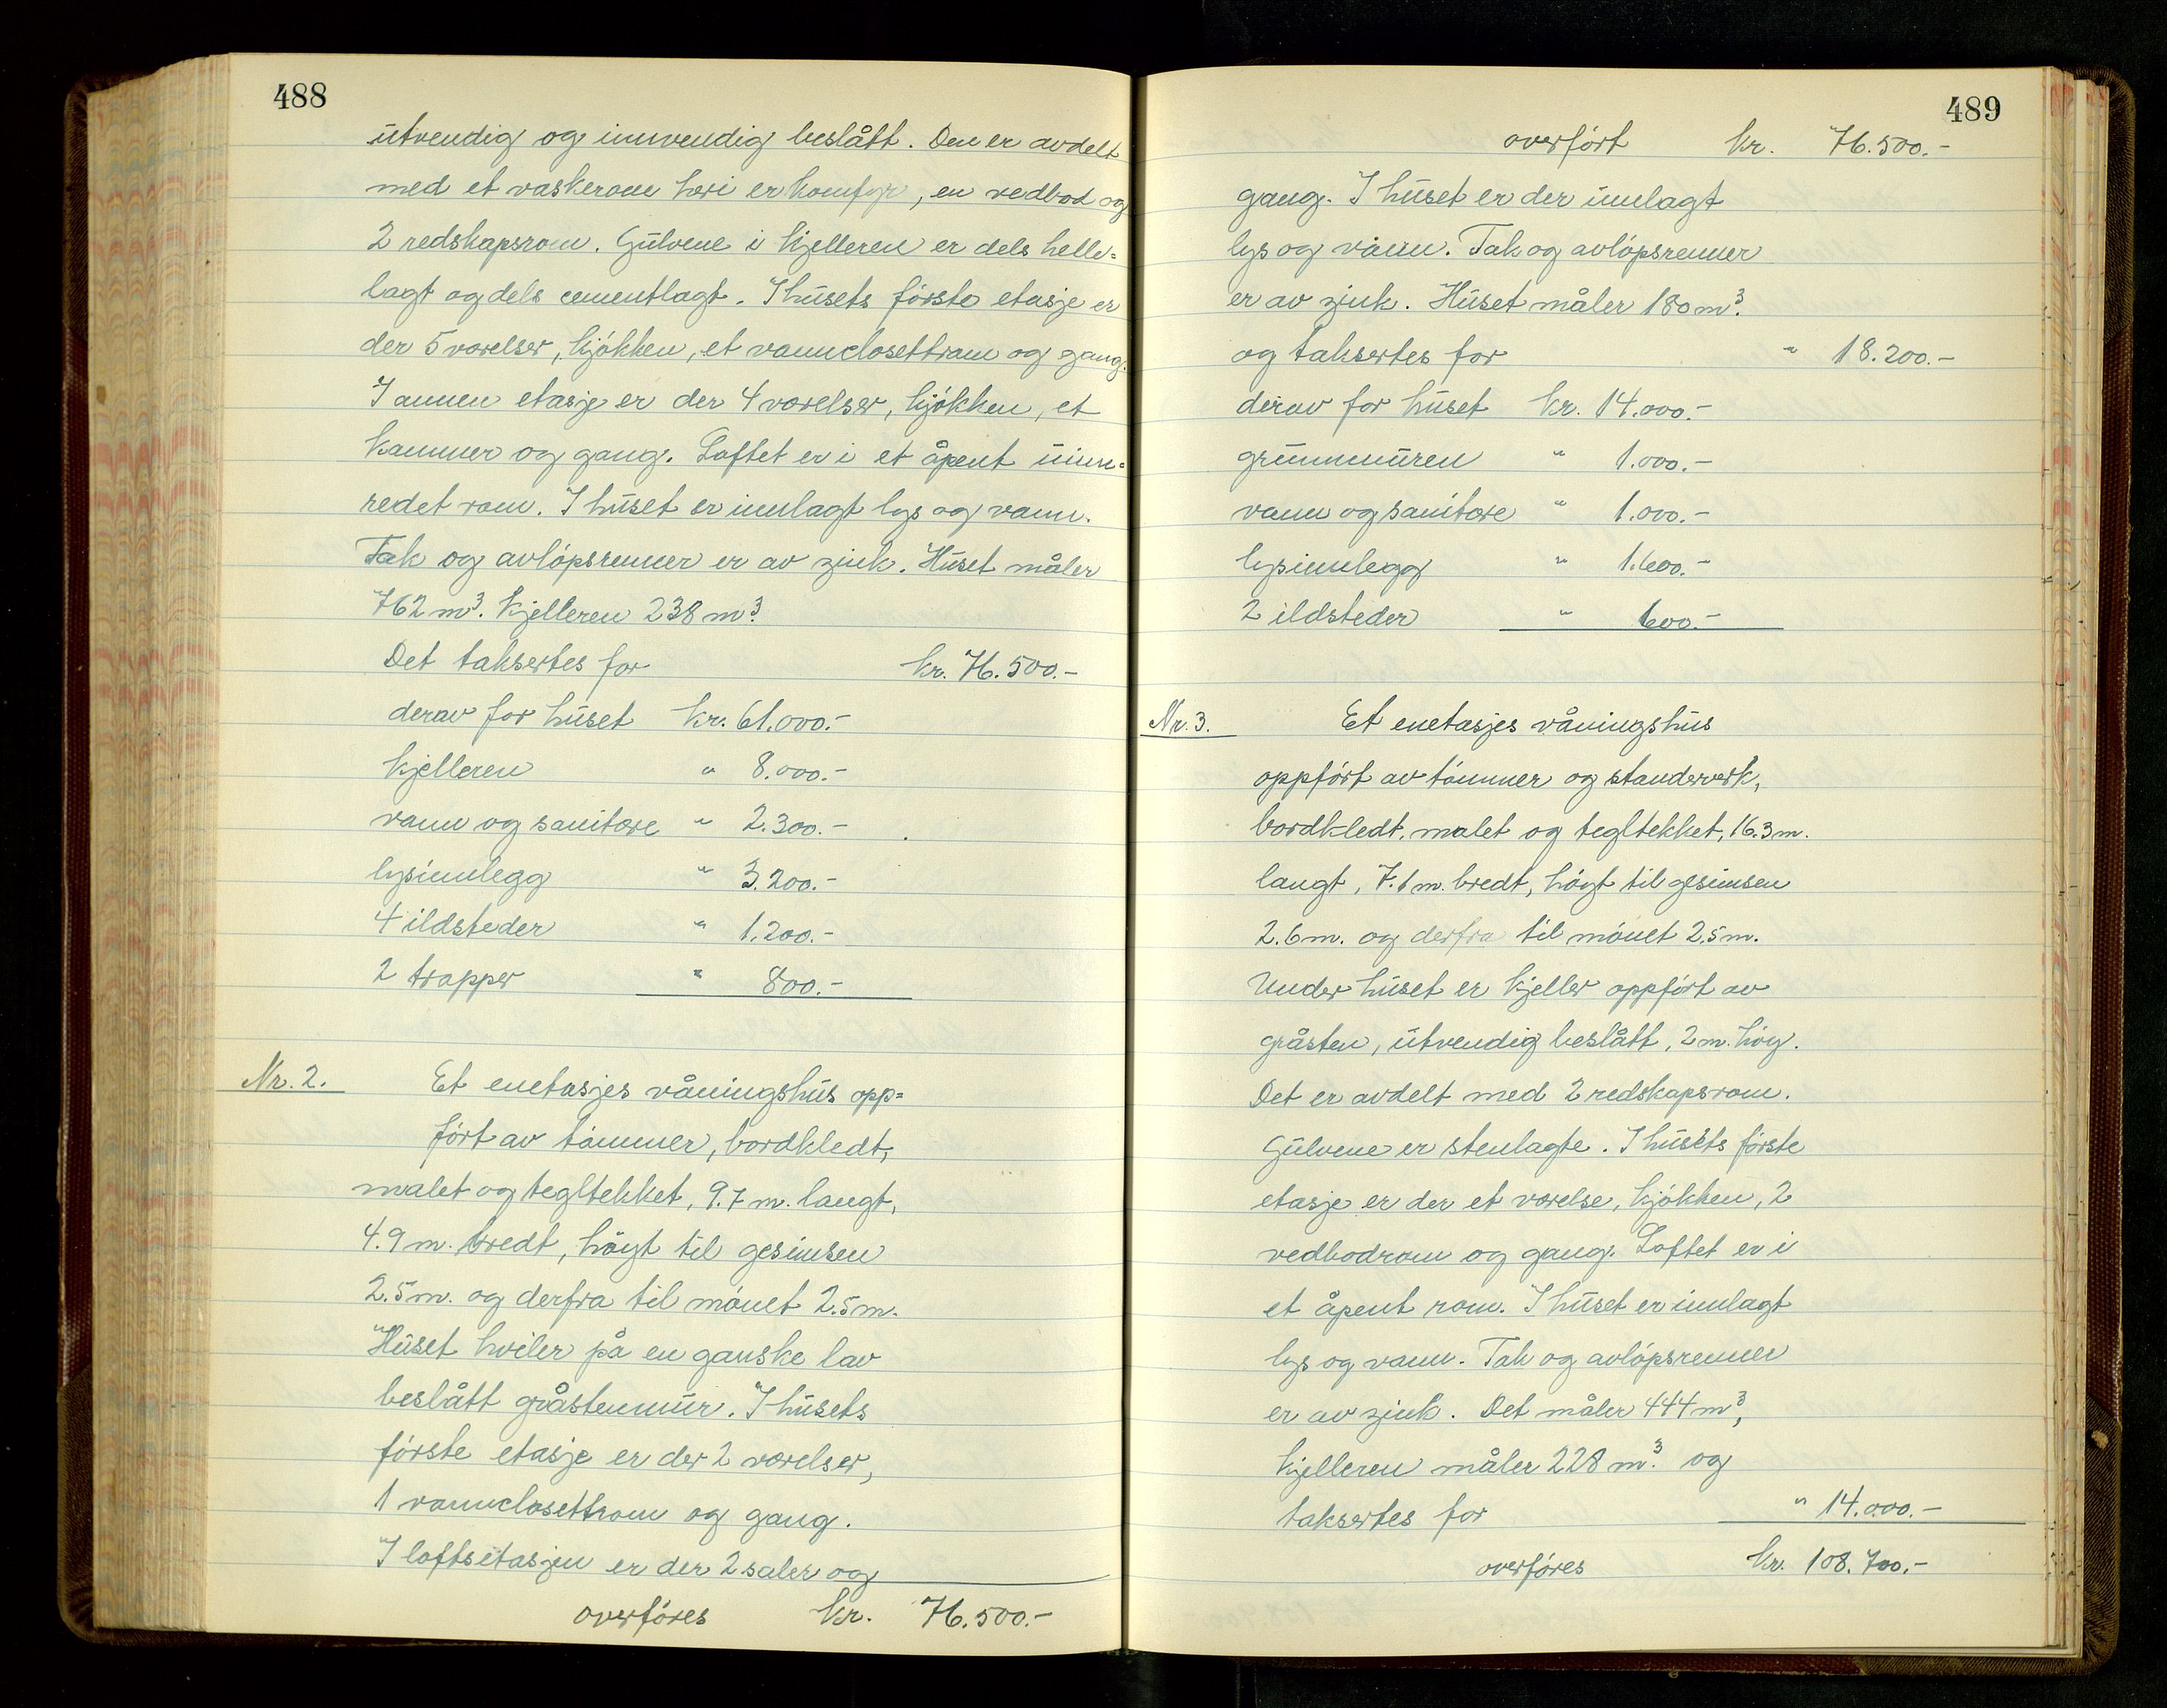 488
utvendig og innvendig beslått. Den er avdelt
med et vaskerom hvori er komfyr, en vedbod og
2 redskapsrom. Gulvene i kjelleren er dels helle-
lagt og dels cementlagt. I husets første etasje er
der 5 værelser, kjøkken, et vannclosettrom og gang.
I annen etasje er der 4 værelser, kjøkken, et
kammer og gang. Loftet er i et åpent uinn-
redet rom. I huset er innlagt lys og vann.
Tak og avløpsrenner er av zink. Huset måler
762 m³. Kjelleren 238 m³.
Det taksertes for kr. 76.500.-
derav for huset kr. 61.000.-
kjelleren " 8.000.-
vann og sanitære " 2.300.-
lysinnlegg " 3.200.-
4 ildsteder " 1.200.-
2 trapper " 800.-
Nr. 2. Et enetasjes våningshus opp-
ført av tømmer, bordkledt,
malet og tegltekket, 9.7 m. langt,
4.9 m. bredt, høgt til gesimsen
2.5 m. og derfra til mønet 2.5 m.
Huset hviler på en ganske lav
beslått gråstenmur. I husets
første etasje er der 2 værelser,
1 vannclosettrom og gang.
I loftsetasjen er der 2 saler og
overføres kr. 76.500.-
489
overført kr. 76.500.-
gang. I huset er der innlagt
lys og vann. Tak og avløpsrenner
er av zink. Huset måler 180 m³.
og taksertes for " 18.200.-
derav for huset kr. 14.000.-
grunnmuren " 1.000.-
vann og sanitære " 1.000.-
lysinnlegg " 1.600.-
2 ildsteder " 600.-
Nr. 3. Et enetasjes våningshus
oppført av tømmer og standerverk,
bordkledt, malet og tegltekket, 16.3 m.
langt, 7.1 m. bredt, høgt til gesimsen
2.6 m. og derfra til mønet 2.5 m.
Under huset er kjeller oppført av
gråsten, utvendig beslått, 2 m. høg.
Det er avdelt med 2 redskapsrom.
Gulvene er stenlagte. I husets første
etasje er der et værelse, kjøkken, 2
vedbodrom og gang. Loftet er i
et åpent rom. I huset er innlagt
lys og vann. Tak og avløpsrenner
er av zink. Det måler 444 m³,
kjelleren måler 228 m³. og
taksertes for " 14.000.-
overføres kr. 108.700.-